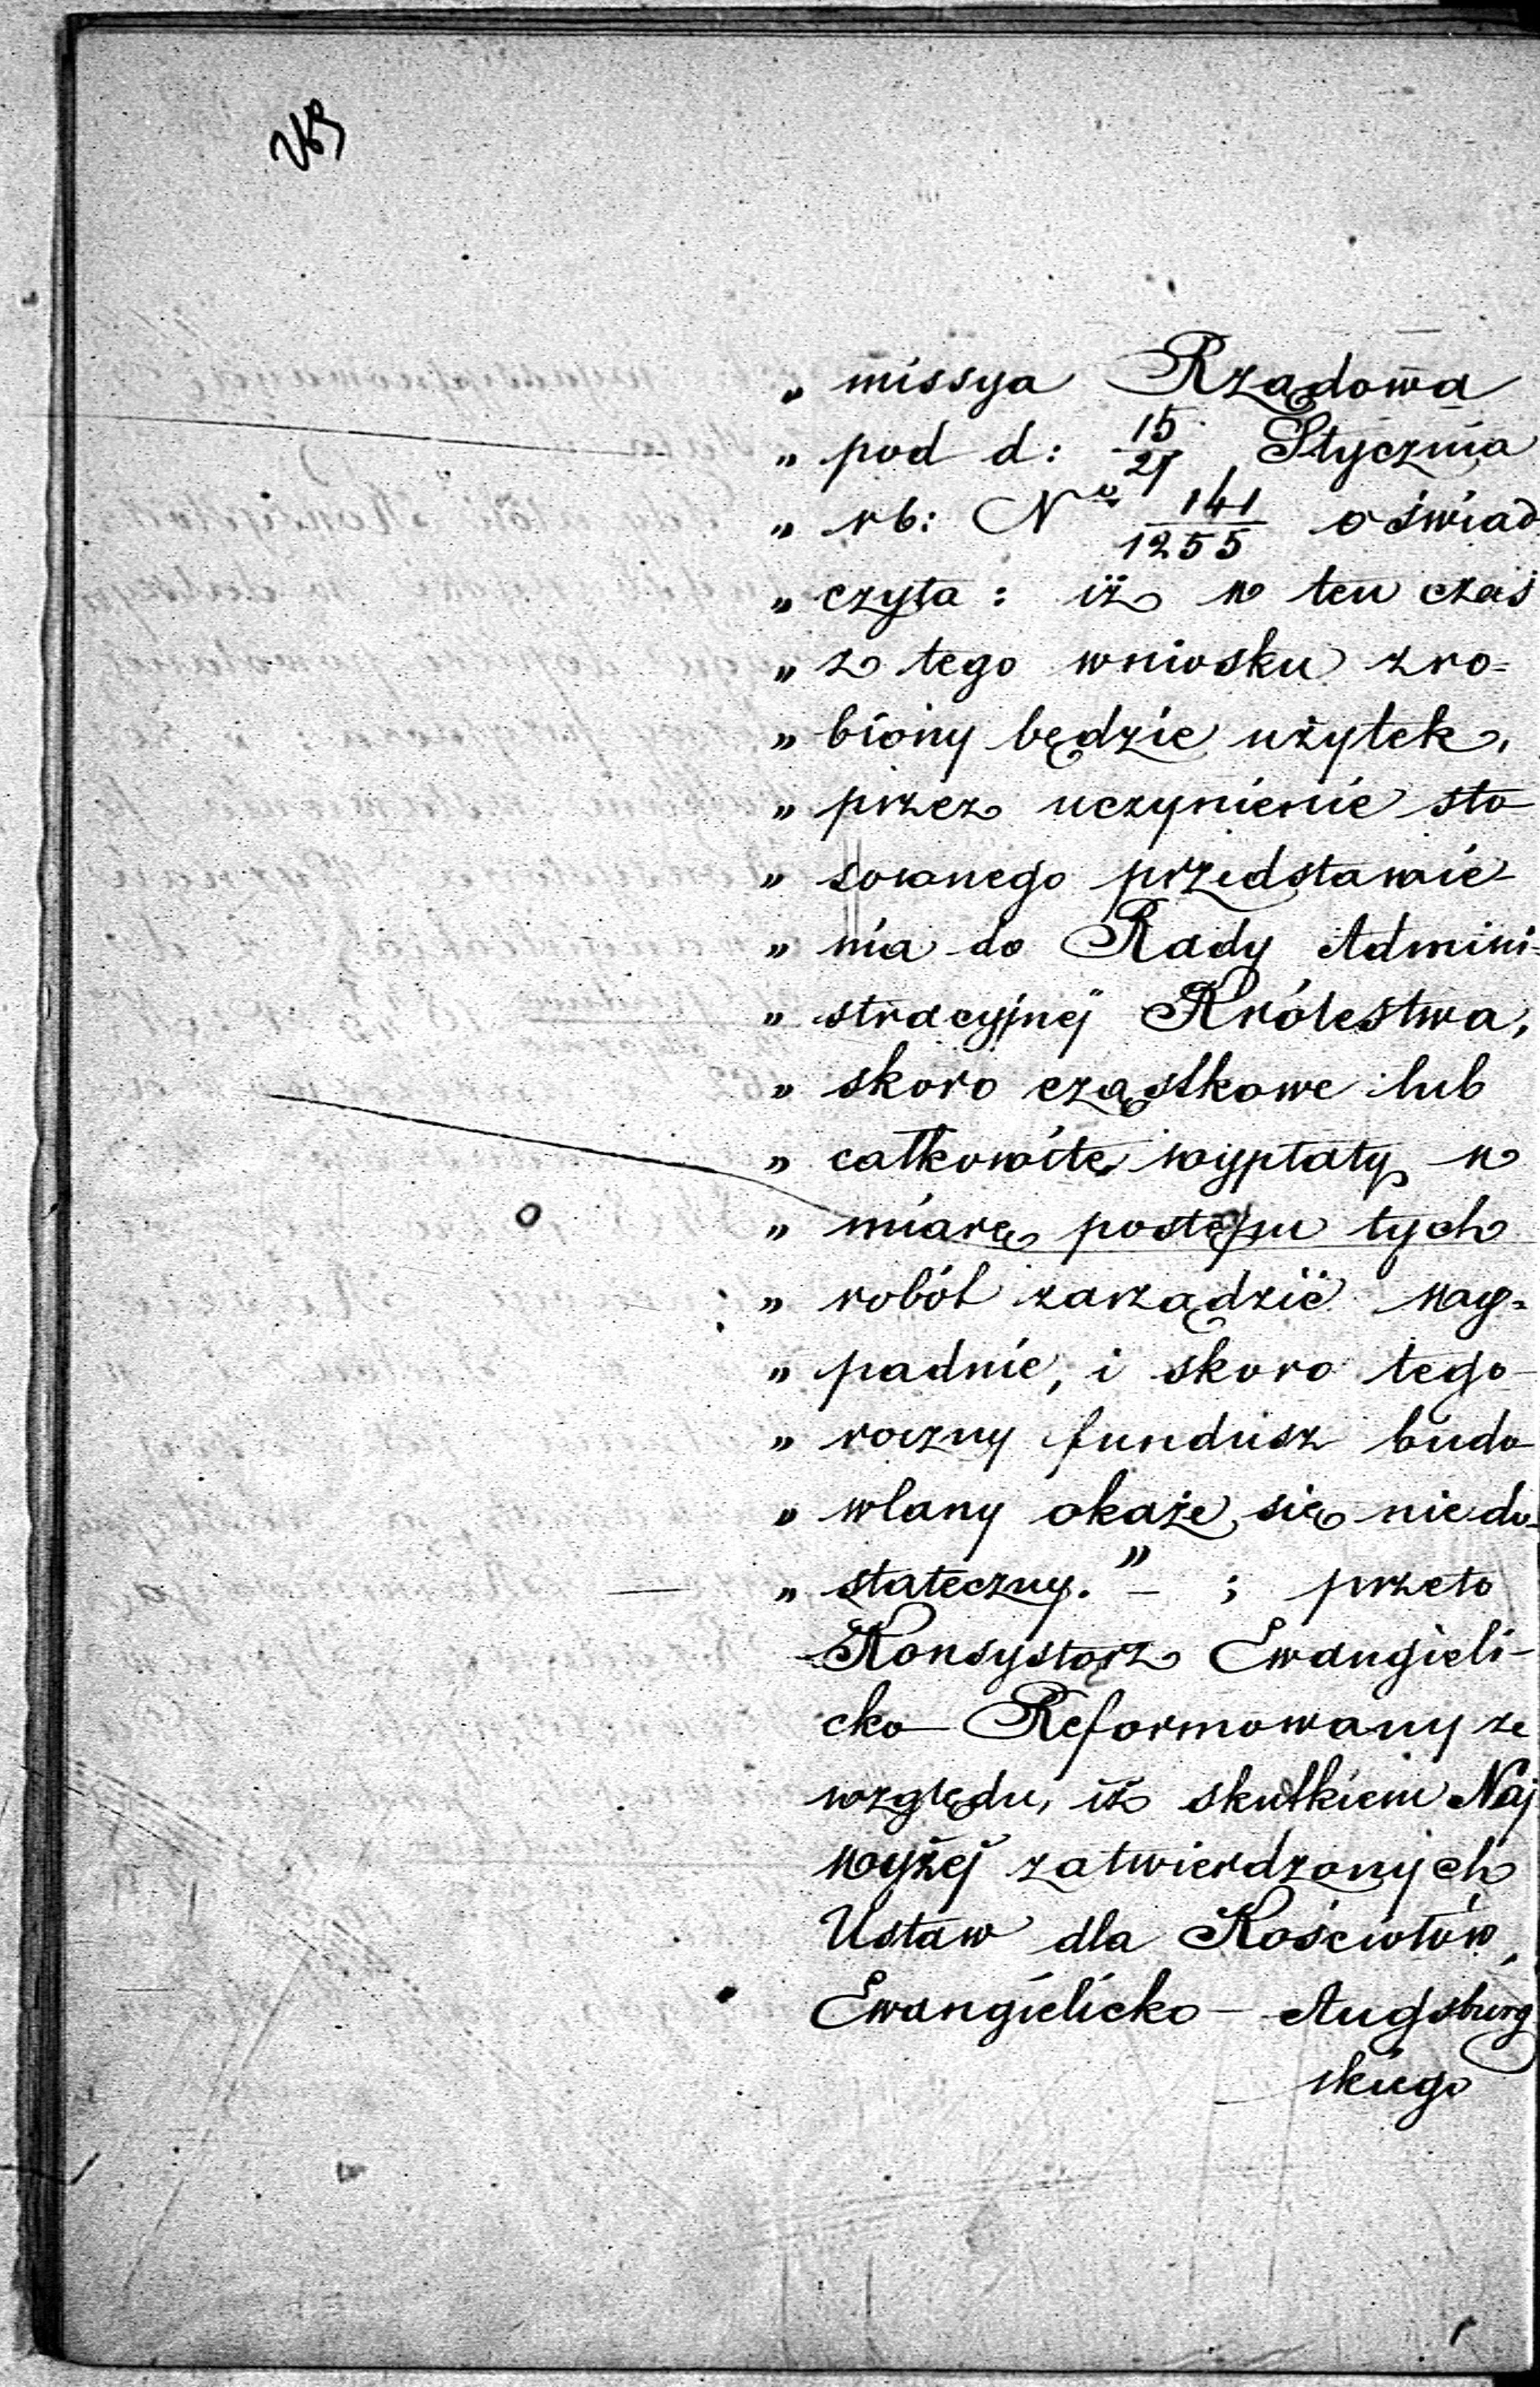 269
„ missya Rządowa
„ pod d: 15/27 Stycznia
„ rb: No 141/1255 oświad
„ czyła: iż w ten czas
„ z tego wniosku zro=
„ biony będzie użytek,
„ przez uczynienie sto
„ sownego przedstawie-
„ nia do Rady Admini-
„ stracyjnej Królestwa,
„ skoro cząstkowe lub
„ całkowite wypłaty w
„ miarę postępu tych
„ robót zarządzić wy=
„ padnie, i skoro tego-
„ roczny fundusz budo
„ wlany okaże się niedo-
„ stateczny." – ; przeto
Konsystorz Ewangieli-
cko–Reformowany ze
względu, iż skutkiem Naj
wyżej zatwierdzonych
Ustaw dla Kościołów
Ewangielicko–Augsburg
skiego